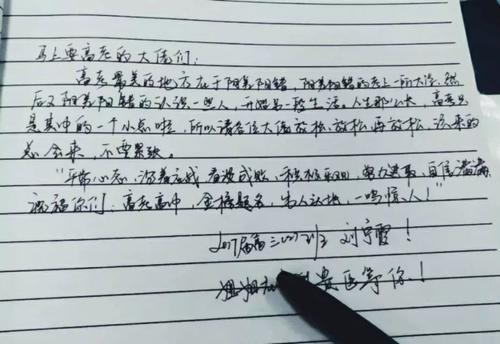 马上要高考的大佬们：
高考最美的地方在于阴差阳错，阴差阳错的考上一所大学，然
后又阴差阳错的认识一些人，开始另一段生活。人生那么长，高考只
是其中的一个小点啦，所以请各位大佬放松，放松再放松，该来的
总会来，不要紧张。
"平常心态，沉着应战，看淡成败，积极，努力，自信满满
祝福你们：高考高中，金榜题名，一鸣惊人！"
届高三班 刘宁霞！
姐姐在医等你！